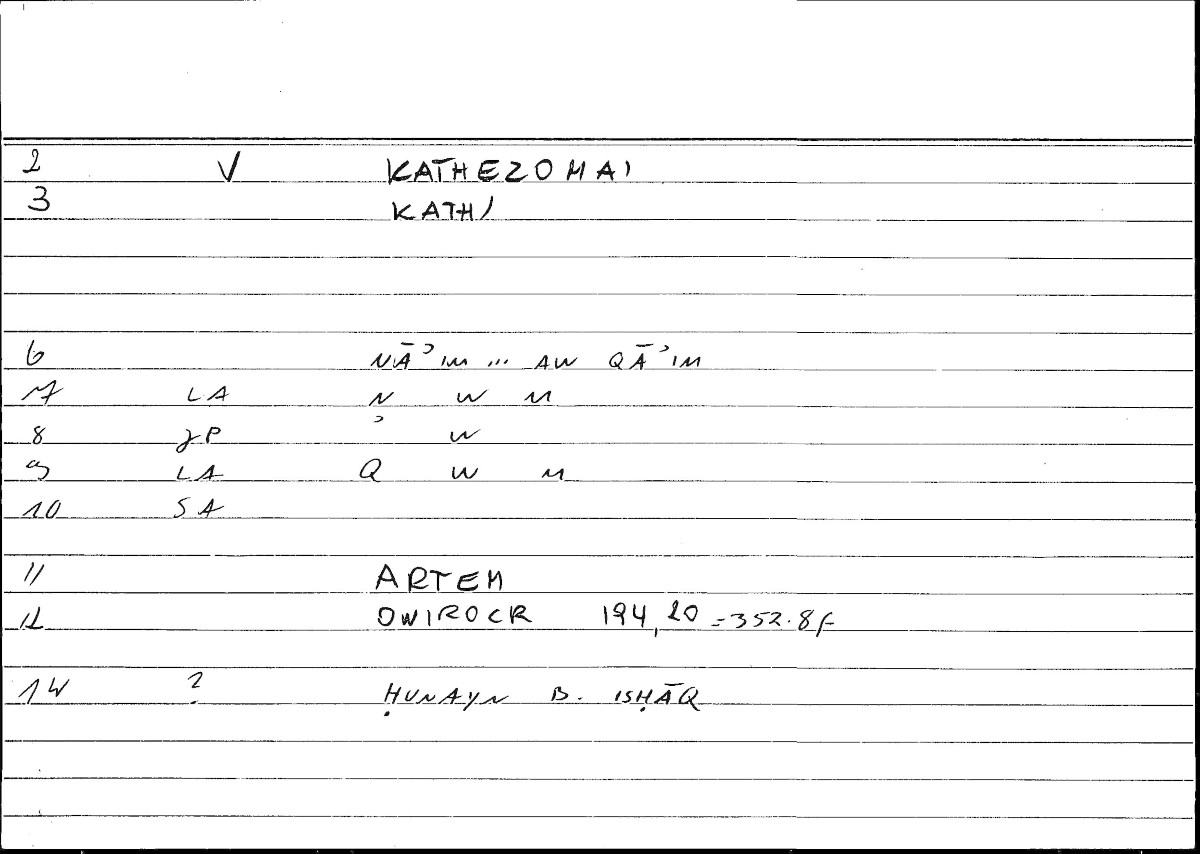 2 V KATHEZOMAI
3 KATH/
6 NĀʾIM ... AW QĀʾIM
7 LA N W M
8 JP ʾ W
9 LA Q W M
10 SA
11 ARTEM
12 OWIROCR 194,20=352.8f
14 ? ḤUNAYN B. ISḤĀQ